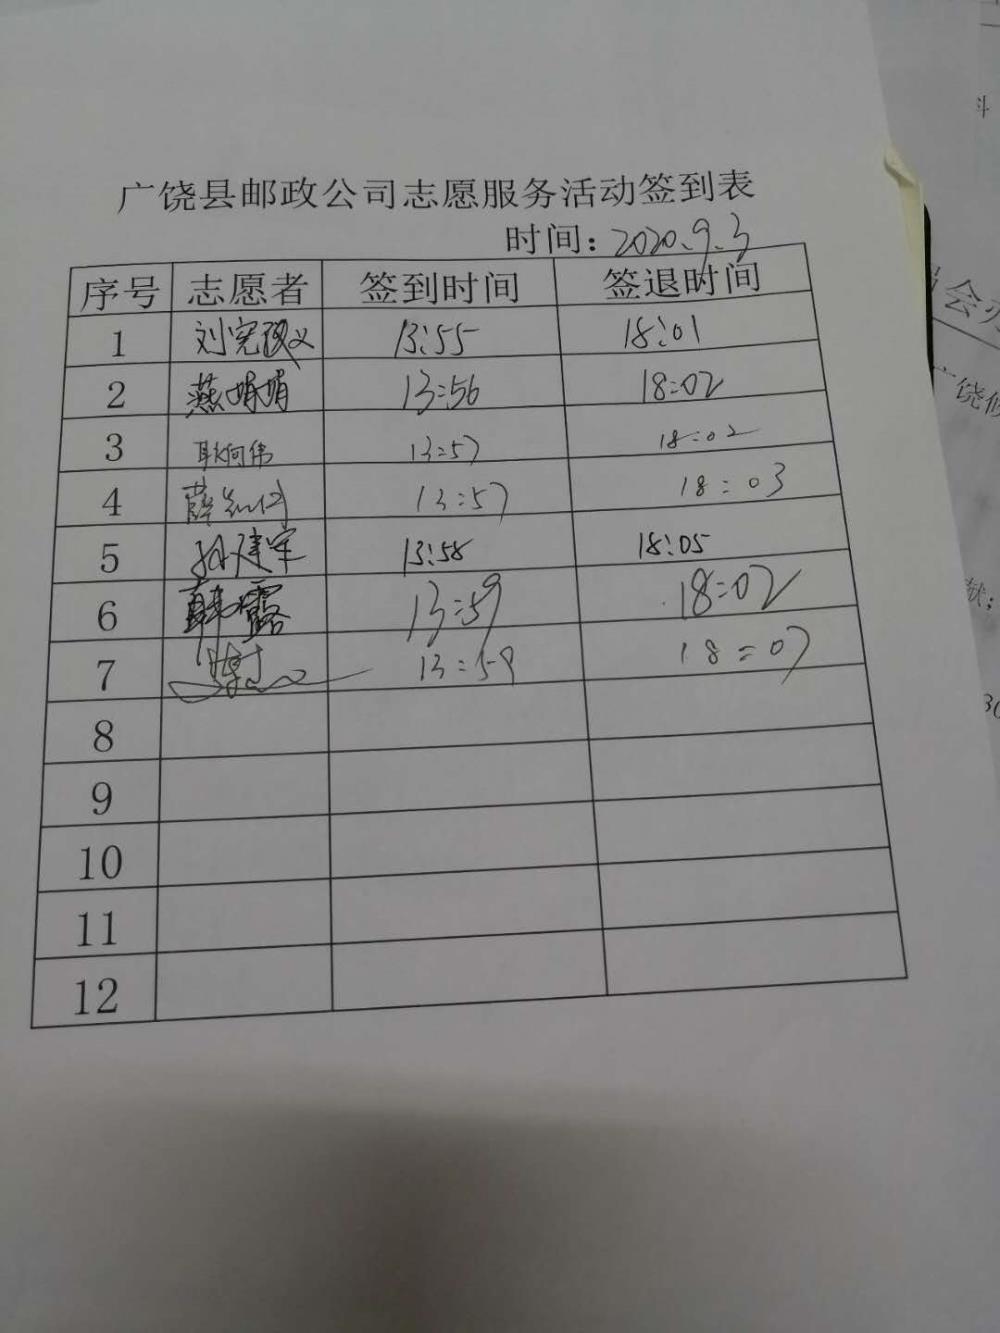 广饶县邮政公司志愿服务活动签到表
时间：2020.9.3
序号 志愿者 签到时间 签退时间
1 刘宪议 13:55 18:01
2 燕娟娟 13:56 18:02
3 耿向伟 13:57 18:02
4 薛 13:57 18:03
5 孙建军 13:58 18:05
6 韩露 13:59 18:02
7 13:59 18:07
8
9
10
11
12
会
广饶
献：